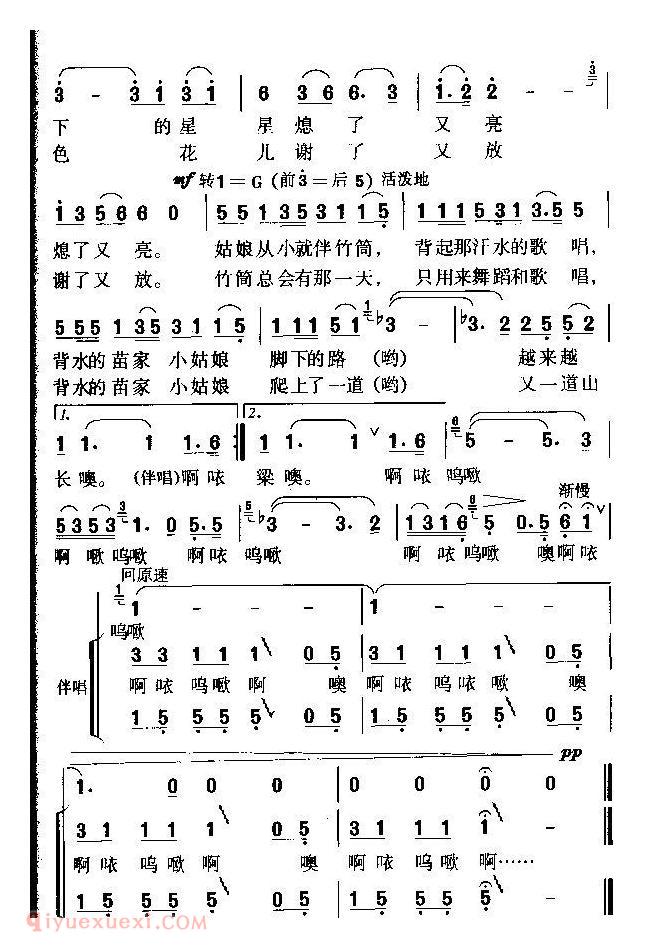 3 - 3 1 3 1 | 6 3 6 6. 3 | 1. 2 2 - 3
下 的 星 星 熄 了 又 亮
色 花 儿 谢 了 又 放
mf 转1=G (前3=后5) 活泼地
1 3 5 6 6 0 | 5 5 1 3 5 3 1 1 5 | 1 1 1 5 3 1 3. 5 5
熄 了 又 亮。 姑 娘 从 小 就 伴 竹 筒, 背 起 那 汗 水 的 歌 唱,
谢 了 又 放。 竹 筒 总 会 有 那 一 天, 只 用 来 舞 蹈 和 歌 唱,
5 5 5 1 3 5 3 1 1 5 | 1 1 1 5 1 b3 - | b3. 2 2 5 5 2
背 水 的 苗 家 小 姑 娘 脚 下 的 路 (哟) 越 来 越
背 水 的 苗 家 小 姑 娘 爬 上 了 一 道 (哟) 又 一 道 山
1. 2.
1 1. 1 1. 6 :| 1 1. 1 4. 6 | 6 5 - 5. 3
长 噢。 (伴唱) 啊 咴 梁 噢。 啊 咴 呜 噉
渐慢
5 3 5 3 3 1. 0 5. 5 | 5 b3 - 3. 2 | 1 3 1 6 6 5 0. 5 6 1
啊 噉 呜 噉 啊 咴 呜 噉 啊 咴 呜 噉 噢 啊 咴
回原速
1 1 - | 1 -
呜 噉
3 3 1 1 1 1 0 5 | 3 1 1 1 1 0 5
伴唱 啊 咴 呜 噉 啊 噢 啊 咴 呜 咴 啊 噢
1 5 5 5 5 0 5 | 1 5 5 5 5 0 5
pp
1. 0 0 0 | 0 0 0 0
3 1 1 1 1 0 5 | 3 1 1 1 1 -
啊 咴 呜 噉 啊 噢 啊 咴 呜 噉 啊……
1 5 5 5 5 0 5 | 1 5 5 5 5 -
qiyuexuexi.com